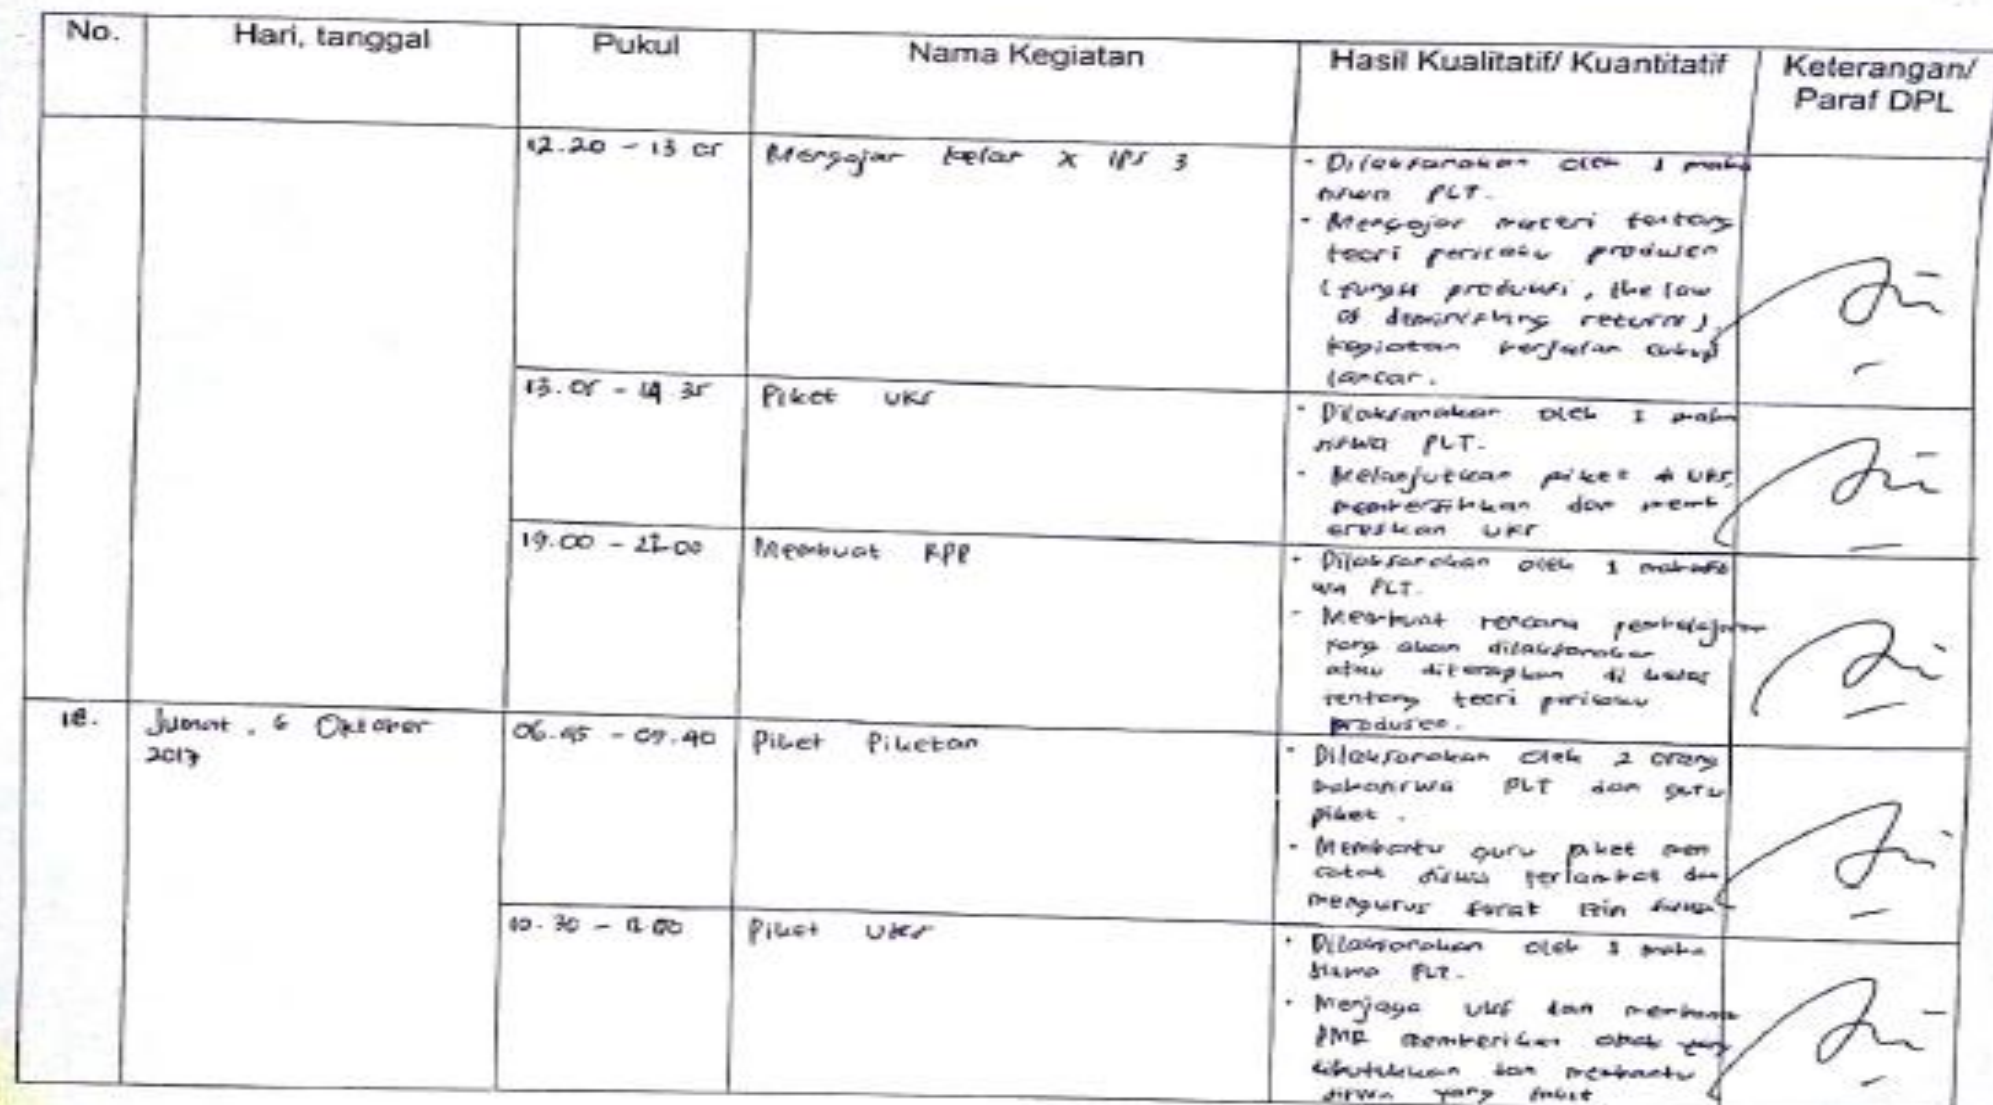 No. Hari, tanggal Pukul Nama Kegiatan Hasil Kualitatif/ Kuantitatif Keterangan/
Paraf DPL
12.20 - 13 05 Mengajar kelas X IPS 3
- Dilaksanakan oleh 1 maha
siswa PLT.
- Mengajar materi tentang
teori perilaku produsen
(fungsi produksi, the law
of deminishing returns)
kegiatan berjalan cukup
lancar.
13.05 - 14 35 Piket UKS
- Dilaksanakan oleh 1 maha
siswa PLT.
- Melanjutkan piket di UKS,
membersihkan dan memb
ereskan UKS
19.00 - Membuat RPP
- Dilaksanakan oleh 1 mahasis
wa PLT.
- Membuat rencana pembelajaran
yang akan dilaksanakan
atau diterapkan di kelas
tentang teori perilaku
produsen.
18. Jumat, 6 Oktober
2017
06.45 - Piket Piketan
- Dilaksanakan oleh 2 orang
mahasiswa PLT dan guru
piket.
- Membantu guru piket men
catat siswa terlambat dan
mengurus surat izin siswa
10.30 - Piket UKS
- Dilaksanakan oleh maha
siswa PLT.
- Menjaga UKS dan
PMR memberikan obat yang
dibutuhkan dan membantu
siswa yang sakit